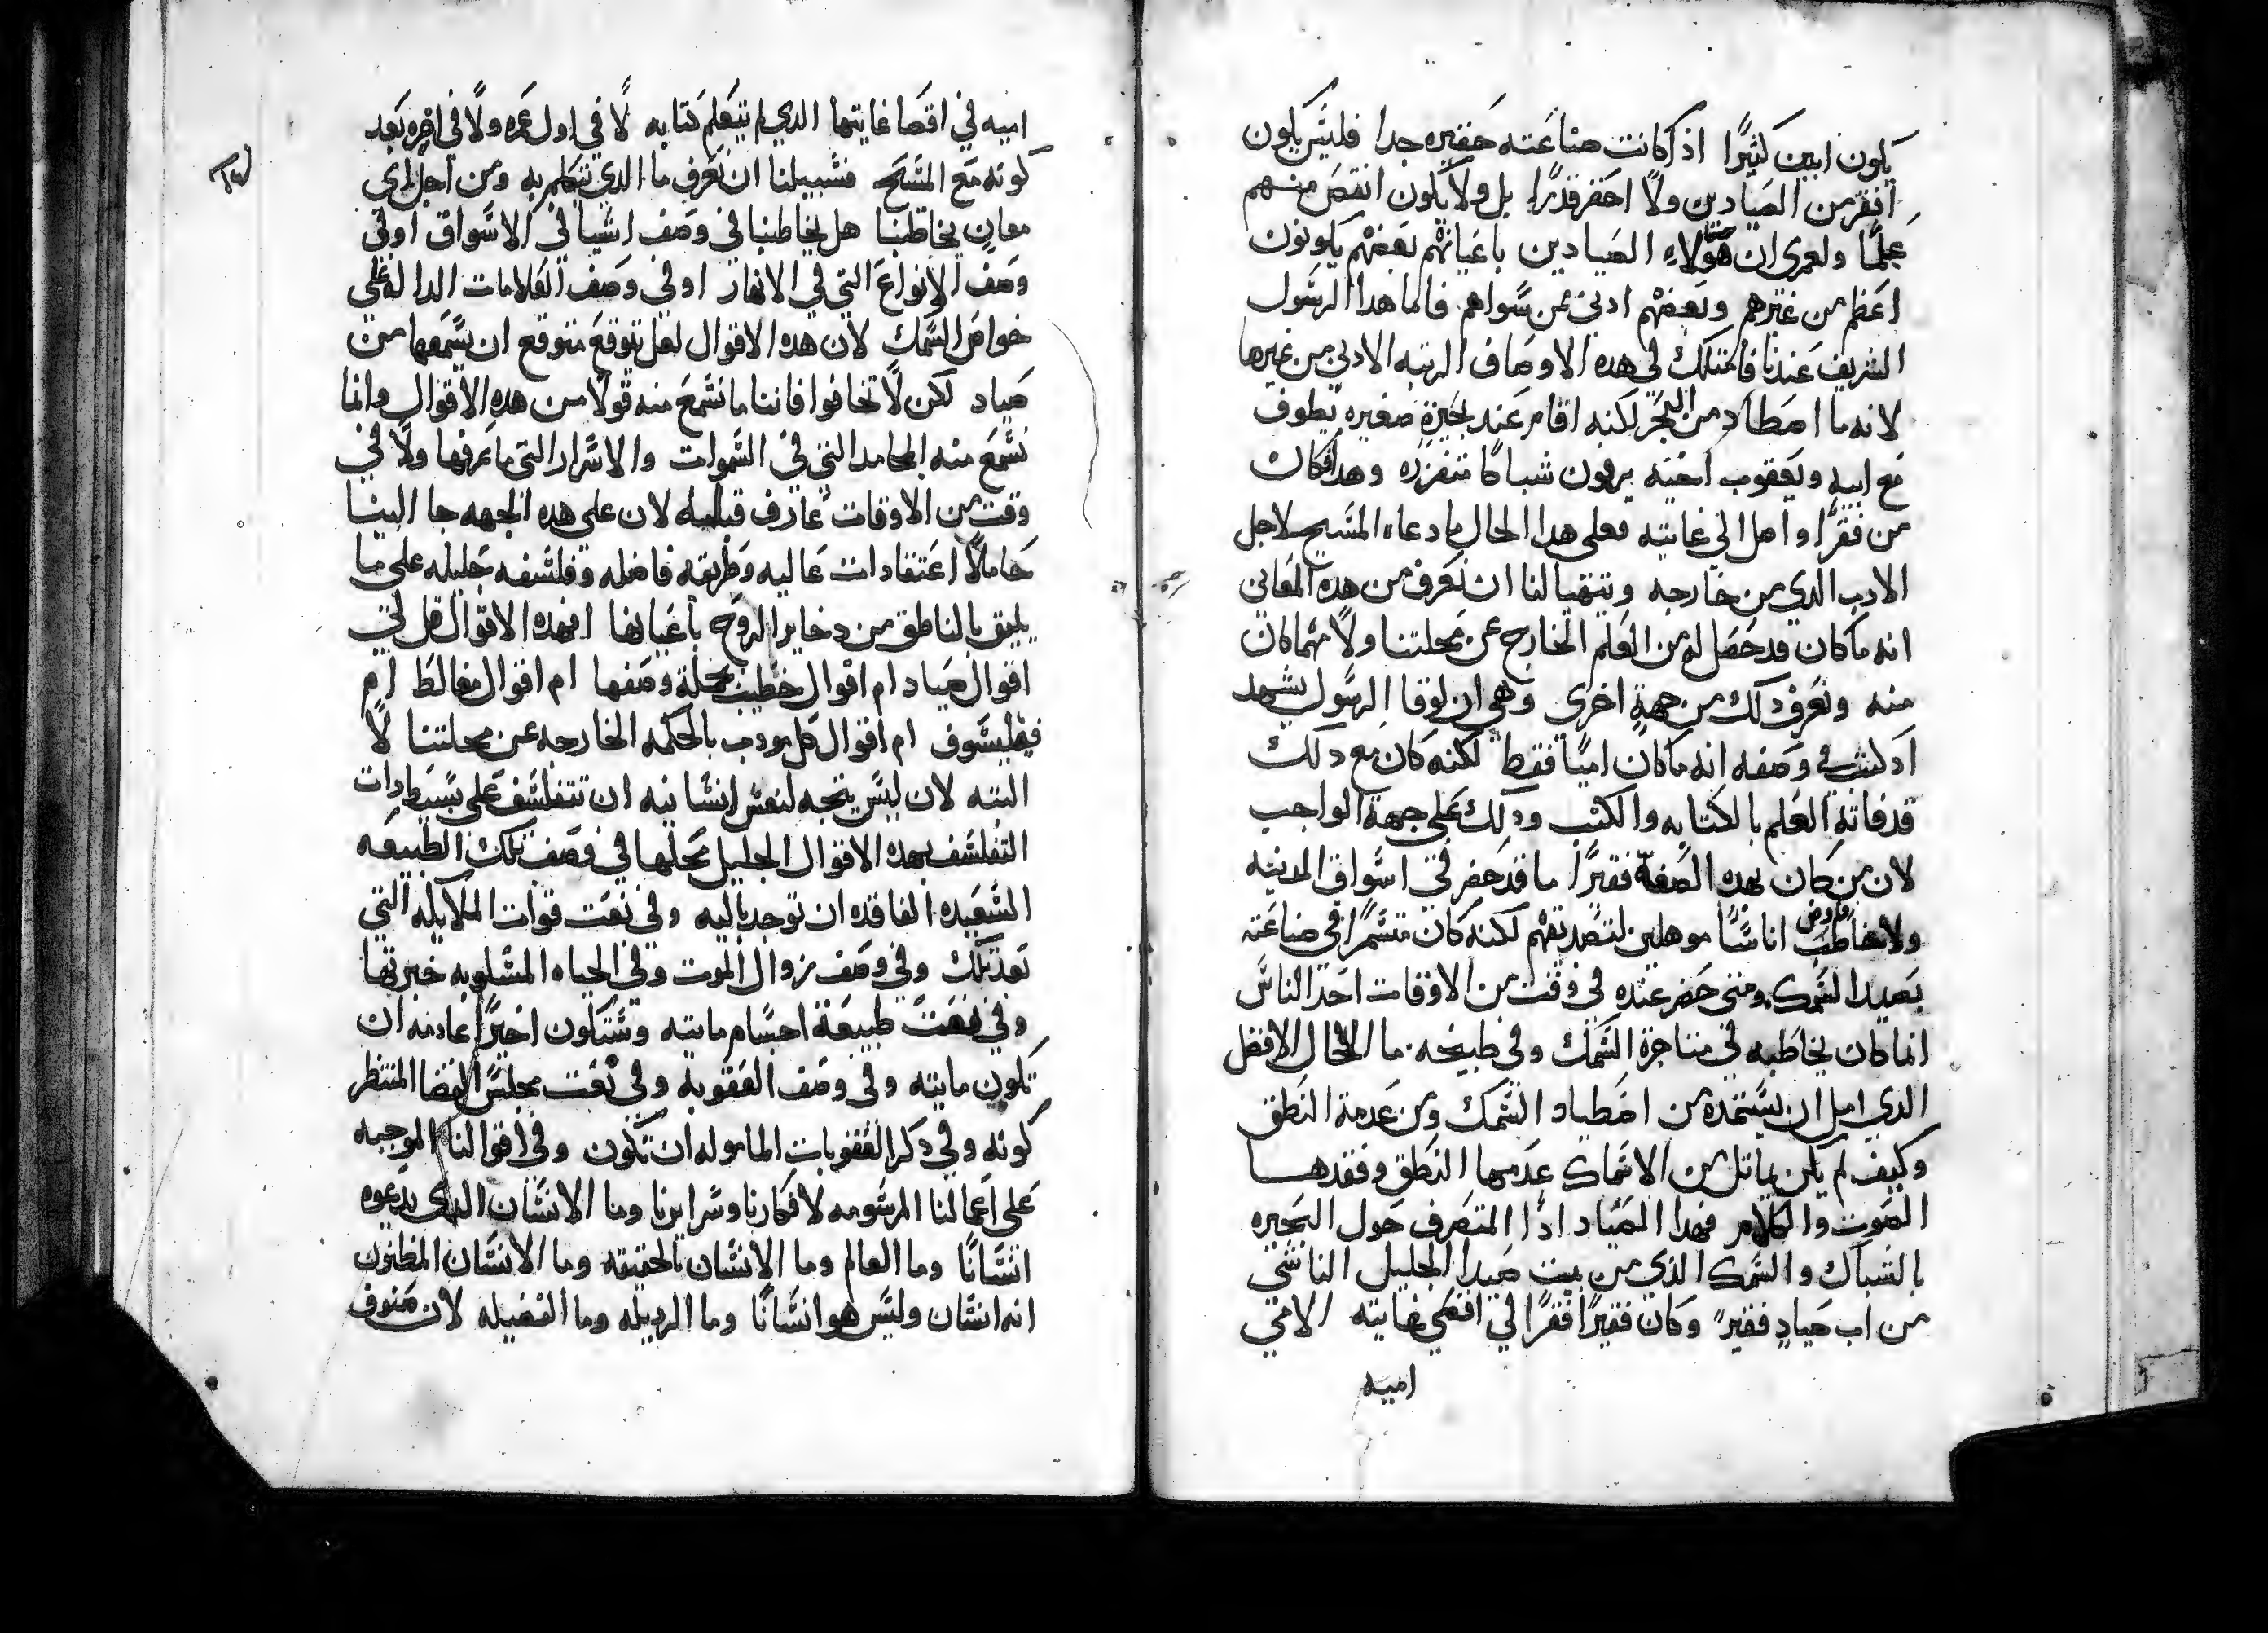 يكون ابين كثيرًا اذ كانت صناعته حقيره جدا فليس يكون
افقر من الصيادين ولا احقر قدرًا بل ولا يكون انقص منهم
علمًا ولعمري ان هولاء الصيادين باعيانهم بعضهم يكونون
اعظم من غيرهم وبعضهم ادني من سواهم فاما هدا الرسول
الشريف عندنا فامتلك في هده الاوصاف الرتبه الادني من غيرها
لانه ما اصطاد من البحر لكنه اقام عند بحيرة صغيره يطوف
مع ابيه ويعقوب اخيه يرفون شباكًا متفزره وهدا فكان
من فقرًا واصل الي غايته فعلي هدا الحال ما دعاه المسيح لاجل
الادب الدي من خارجه ويتهيا لنا ان نعرف من هده المعاني
انه ما كان قد حصل له من العلم الخارج عن محلتنا ولا مهما كان
منه ونعرف دلك من جهة اخري وهي ان لوقا الرسول يشهد
اد كتب في وصفه انه ما كان اميًا فقط لكنه كان مع دلك
قد فاته العلم بالكتابه والكتب ودلك علي جهة الواجب
لان من كان بهده الصفة فقيرًا ما قد حضر في اسواق المدينه
ولا خاطب اناسًا موهلين لتصديقهم لكنه كان متسمرًا في صناعته
بصيد السمك ومتي حضر عنده في وقت من الاوقات احد الناس
انما كان يخاطبه في متاجرة السمك وفي طبيخه ما الحال الافضل
الدي امل ان يستمده من اصطياد السمك ومن عدمة النطق
وكيف لم يكن يماتل من الاسماك عدمها النطق وفقدها
الصوت والكلام فهدا الصياد ادًا المتصرف حول البحيره
بالشباك والسمك الذي من بيت صيدا الجليل الناشي
من اب صياد فقير وكان فقيرًا فقرًا في اقصي غايته الامي
اميه
اميه في اقصا غايتها الدي لم يتعلم كتابه لا في اول عمره ولا في اخره بعد
كونه مع المسيح فسبيلنا ان نعرف ما الدي نتكلم به ومن اجل اي
معان يخاطبنا هل يخاطبنا في وصف اشيا في الاسواق او في
وصف الانواع التي في الانهار او في وصف العلامات الداله علي
خواص السمك لان هده الاقوال لعل يتوقع متوقع ان يسمعها من
صياد لكن لا تخافوا فاننا ما نسمع منه قولًا من هده الاقوال وانما
نسمع منه المحامد التي في السموات والاسرار التي ما عرفها ولا في
وقت من الاوقات عارف قبله لان علي هده الجهه جا الينا
حاملًا اعتقادات عاليه وطريقه فاضله وفلسفه جليله علي ما
يليق بالناطق من دخاير الروح باعيانها افهده الاقوال قل لي
اقوال صياد ام اقوال خطيب جملة وصفها ام اقوال مغالط ام
فيلسوف ام اقوال كل مودب بالحكمه الخارجه عن محلتنا لا
البته لان ليس يتجه لنفس انسانيه ان تتفلسف علي بسيط دات
التفلسف بهده الاقوال الجليل محلها في وصف تلك الطبيعه
السعيده الفاقده ان توجد باليه وفي نعت قوات الملايكه التي
بعد تلك وفي وصف زوال الموت وفي الحياه المسلوبه خبرتها
وفي نعت طبيعة اجسام مايته وستكون اخيرًا عادمه ان
تكون مايته وفي وصف العقوبه وفي نعت مجلس القضا المنتظر
كونه وفي دكر العقوبات الماموله ان تكون وفي اقوالنا الموجبه
علي اعمالنا المرسومه لافكارنا وسرايرنا وما الانسان الدي يدعوه
انسانًا وما العالم وما الانسان بالحقيقه وما الانسان المظنون
انه انسان وليس هو انسانًا وما الرديله وما الفضيله لان صنوف